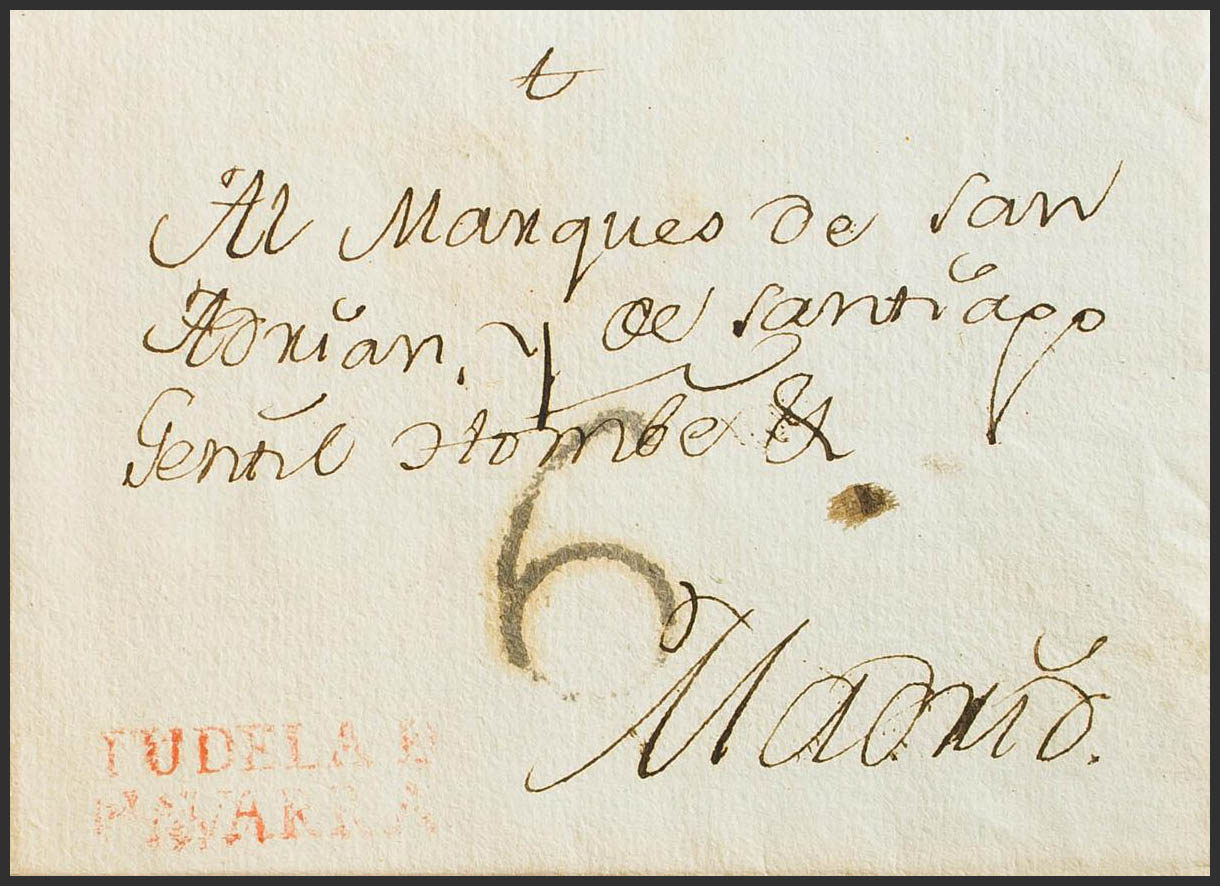 †
Al Marques de san
Adrian, y de santiago
Gentil Hombe &
6
Madrid.
TUDELA D
NAVARRA